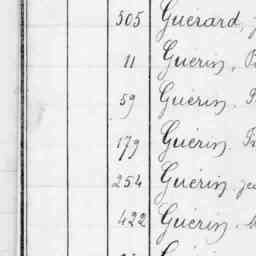 505 Guérard,
11 Guérin,
59 Guérin,
179 Guérin,
254 Guérin,
422 Guérin,